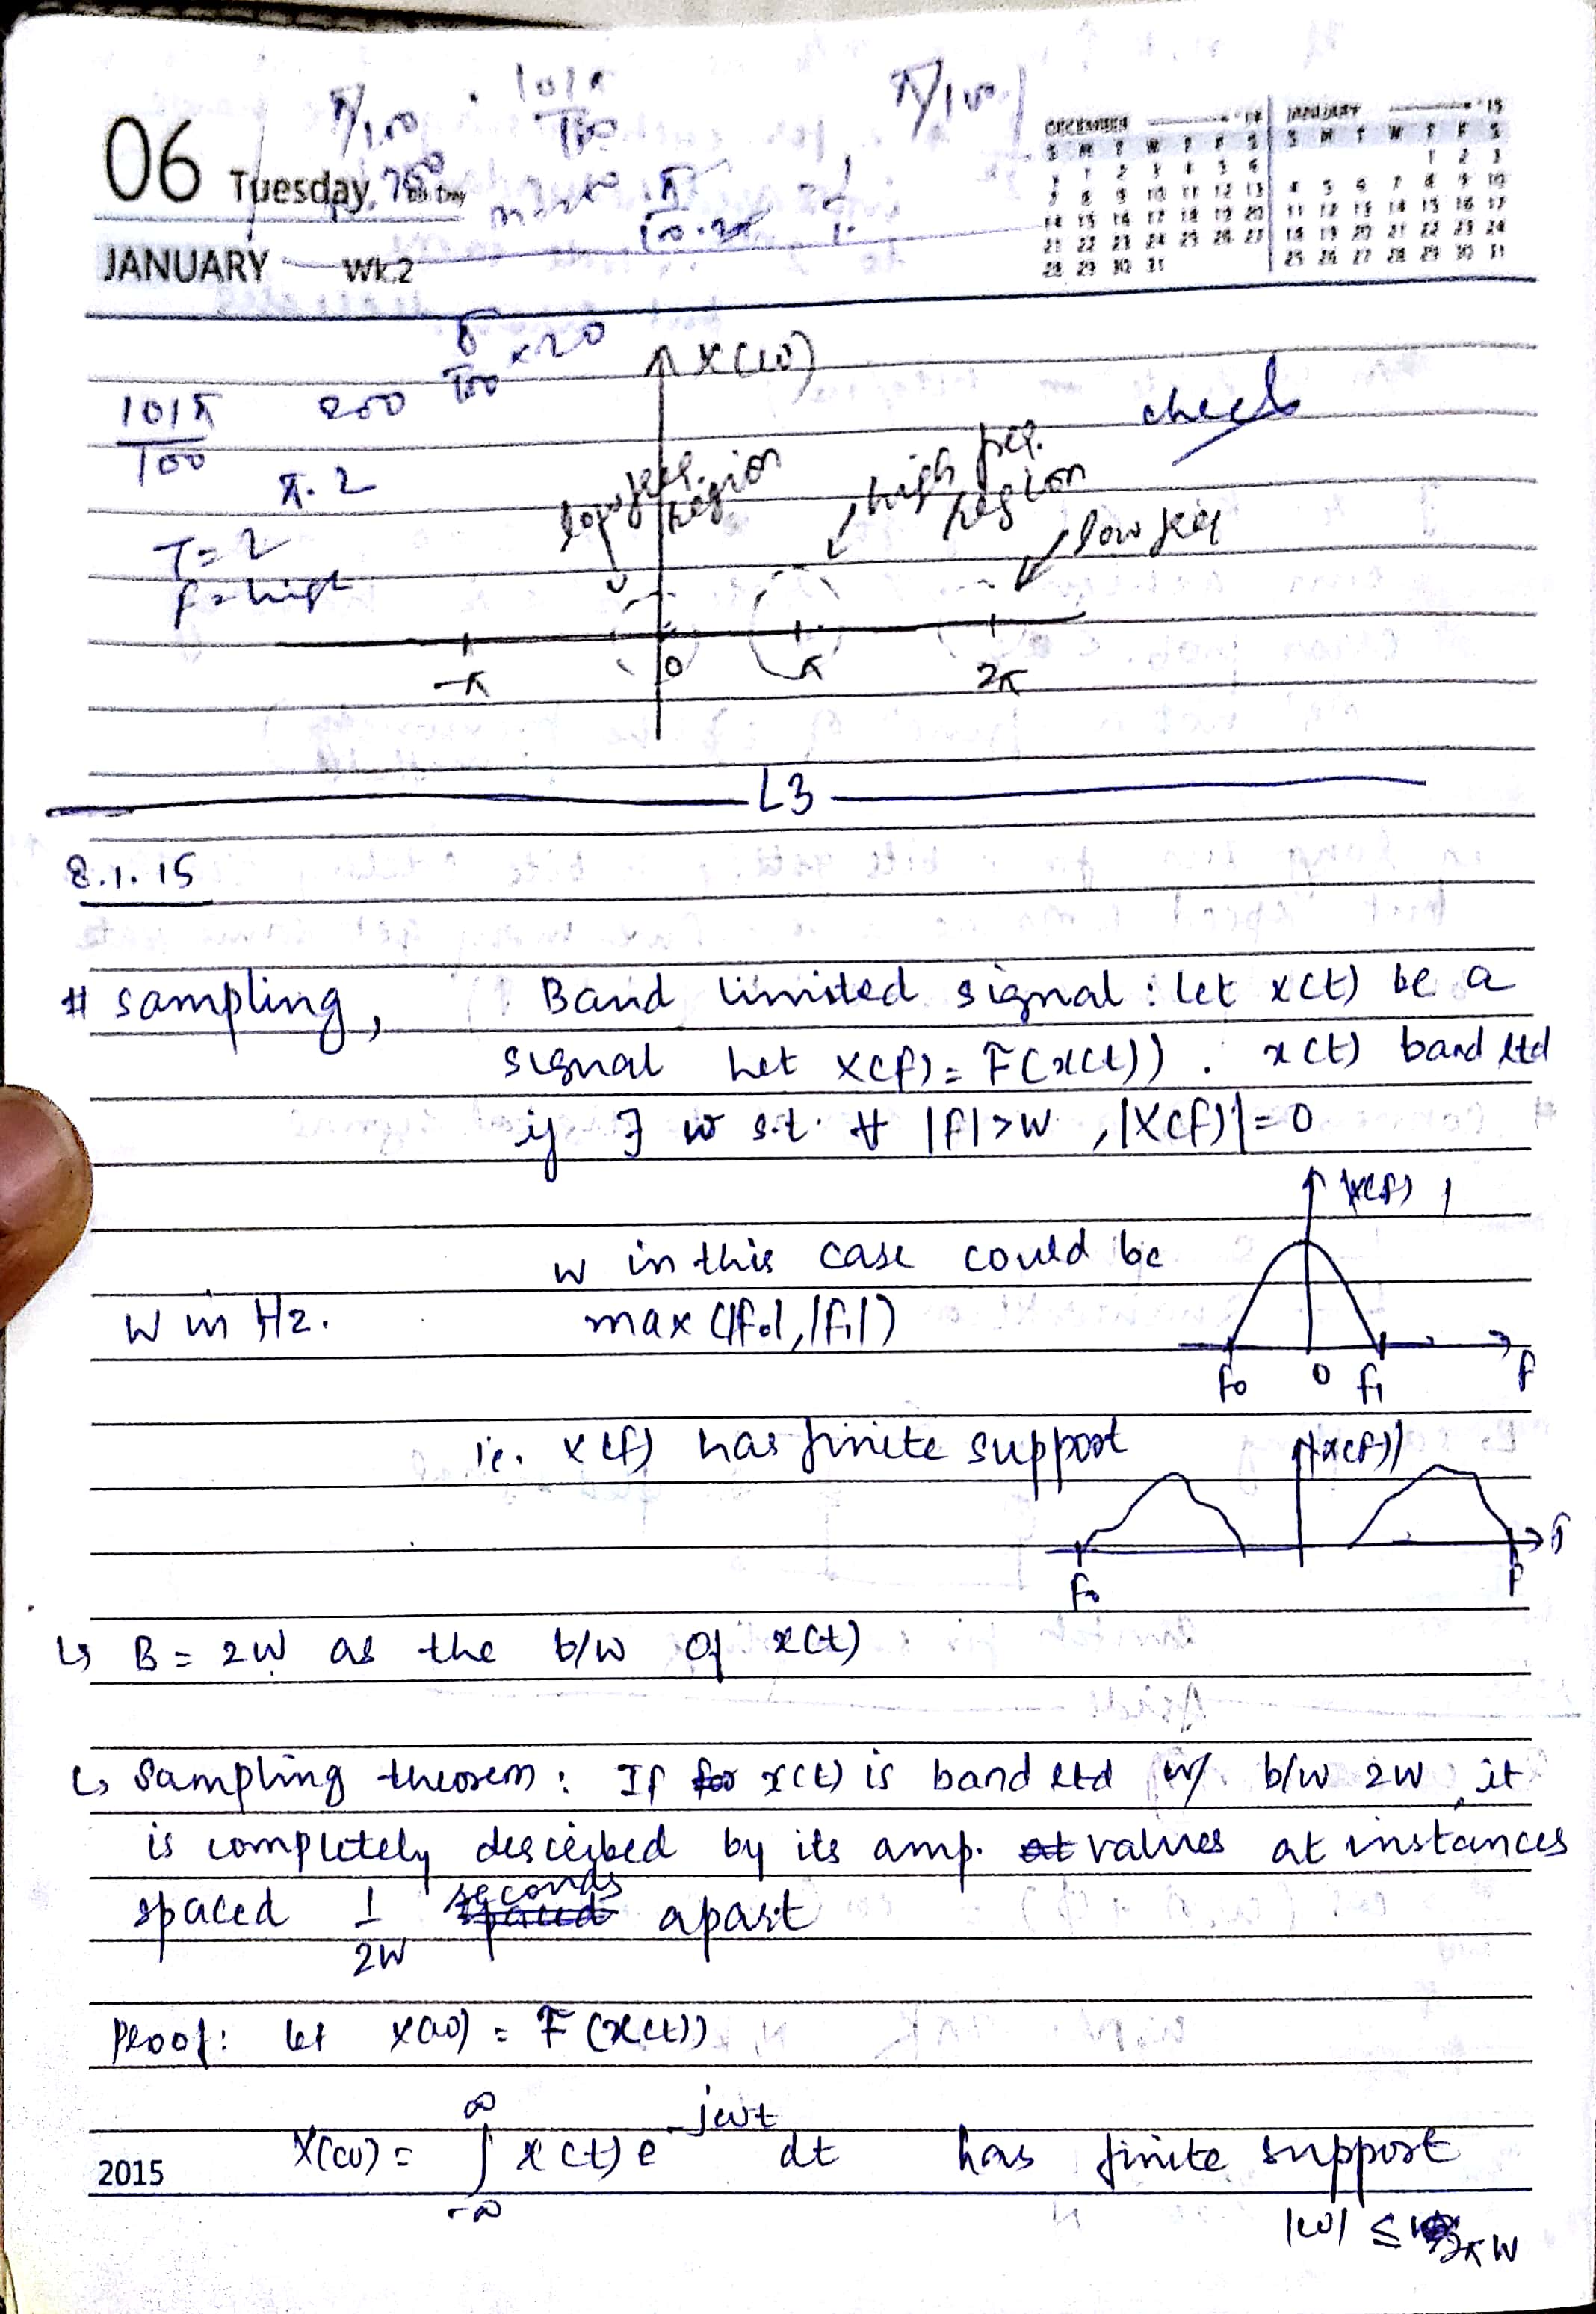 06 Tuesday,
JANUARY Wk.2
π/100 101π/100 π/100
DECEMBER '14 JANUARY '15
S M T W T F S S M T W T F S
1 2 3 4 5 6 1 2 3
7 8 9 10 11 12 13 4 5 6 7 8 9 10
14 15 16 17 18 19 20 11 12 13 14 15 16 17
21 22 23 24 25 26 27 18 19 20 21 22 23 24
28 29 30 31 25 26 27 28 29 30 31
×20
X(ω)
101π/100 200
check
π.2
low freq. region
high freq. region
low freq
T=2
f=high
-π 0 π 2π
L3
8.1.15
# sampling, Band limited signal : let x(t) be a
signal let X(f) = F(x(t)) . x(t) band ltd
if ∃ W s.t. ∀ |f|>W , |X(f)|=0
|X(f)|
W in this case could be
W in Hz. max(|f0|,|f1|)
f0 0 f1 f
ie. X(f) has finite support |X(f)|
f0 f
↳ B = 2W as the b/w of x(t)
↳ Sampling theorem : If for x(t) is band ltd w/ b/w 2W, it
is completely described by its amp. at values at instances
spaced 1/2W spaced seconds apart
Proof: let X(ω) = F(x(t))
X(ω) = ∫_{-∞}^{∞} x(t) e^{-jωt} dt has finite support
2015
|ω| ≤ 2πW